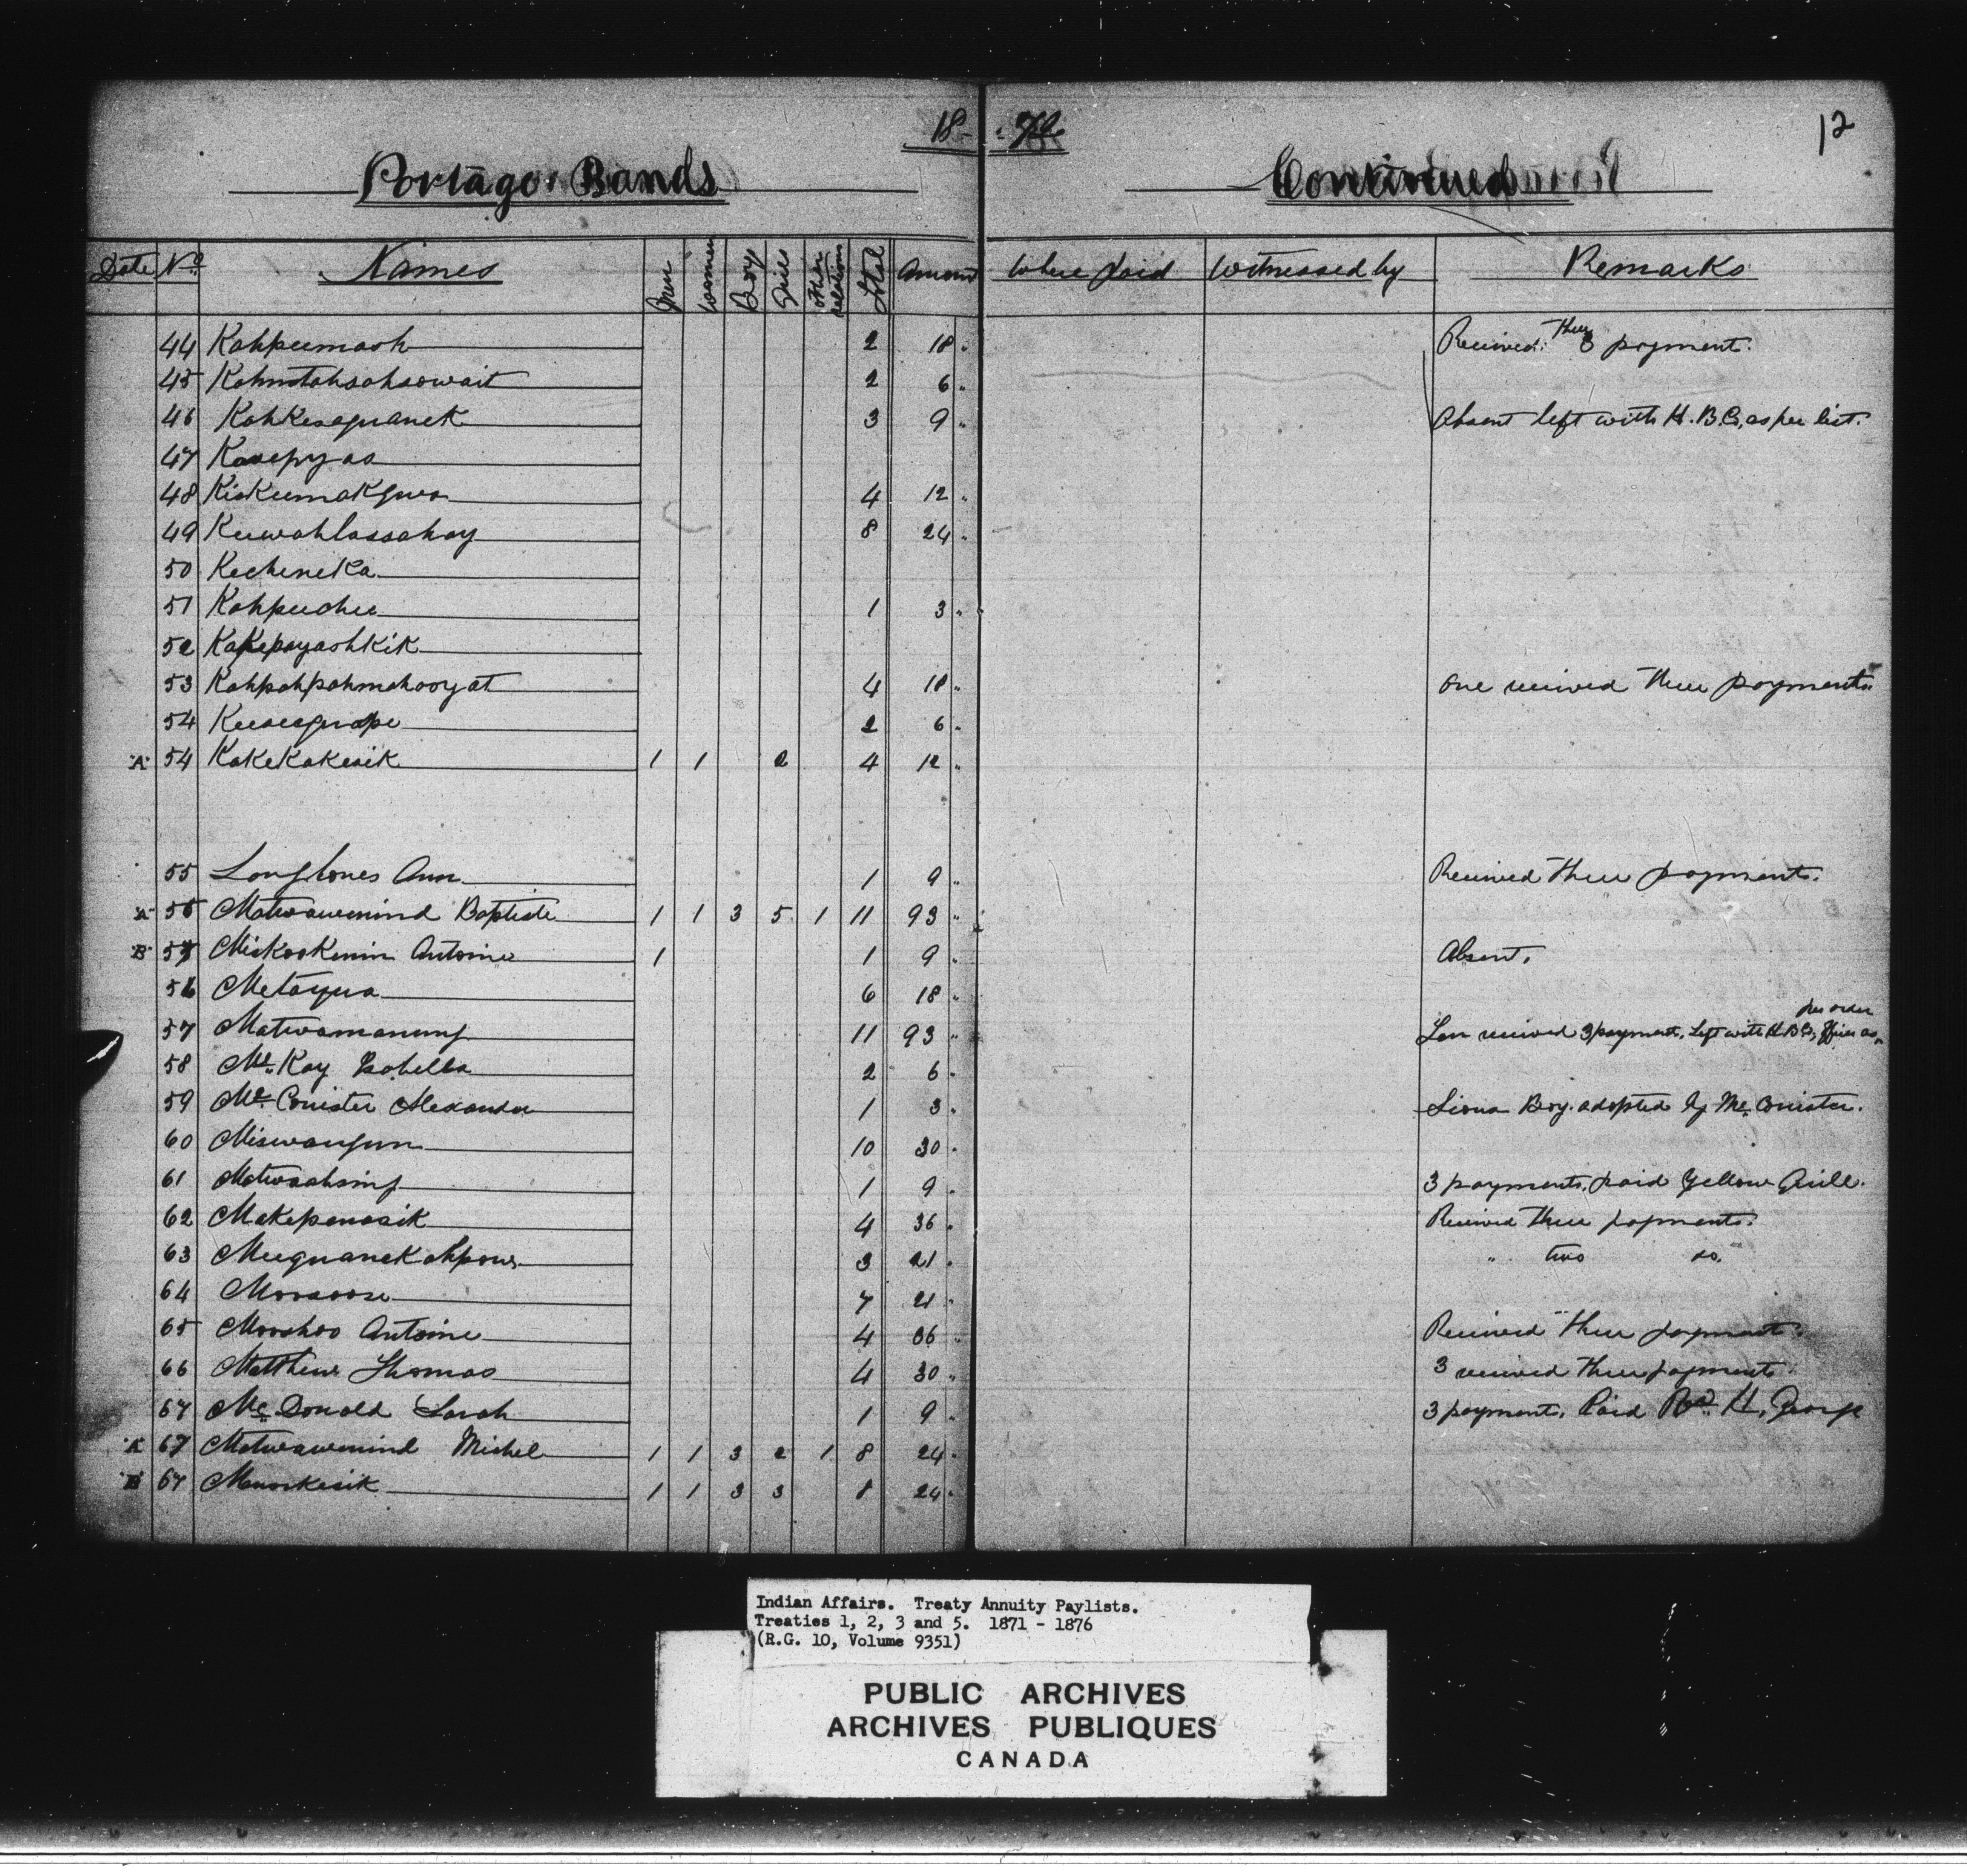 18-
12
Portage Bands Continued
Date No Names Men Women Boys Girls Other Relations Total Amount Where Paid Witnessed by Remarks
44 Kahpeemash 2 18 Received Three payment.
45 2 6
46 Kahkesequanek 3 9 Absent left with H.B.Co. as per list.
47
48 Kiskeemakqua 4 12
49 8 24
50 Kecheneka
51 Kahpeechee 1 3
52 Kakepayashkik
53 Kahpahpahmahooyat 4 18 One received Three payments
54 2 6
"A" 54 KakeKakesik 1 1 2 4 12
55 Longbones Ann 1 9 Received Three payments.
"A" 55 Matwawenind Baptiste 1 1 3 5 1 11 93
"B" 55 Miskookenin Antoine 1 1 9 Absent.
56 Metaqua 6 18
57 Matwamanung 11 93 Ten received 3 payments, Left with H.B.Co. Officer as per order
58 Mc Kay Isabella 2 6
59 Mc Corrister Alexander 1 3 Sioux Boy adopted by Mc Corrister.
60 10 30
61 Matwaashing 1 9 3 payments, paid Yellow Quill.
62 Makepenasik 4 36 Received Three payments.
63 3 21 " two do.
64 Moosoose 7 21
65 Mooshoo Antoine 4 36 Received Three payments.
66 Matthew Thomas 4 30 3 received Three payments.
67 Mc Donald Sarah 1 9 3 payments, Paid Revd. H. George
"A" 67 Matwawenind Michel 1 1 3 2 1 8 24
"B" 67 1 1 3 3 8 24
Indian Affairs. Treaty Annuity Paylists.
Treaties 1, 2, 3 and 5. 1871 - 1876
(R.G. 10, Volume 9351)
PUBLIC ARCHIVES
ARCHIVES PUBLIQUES
CANADA